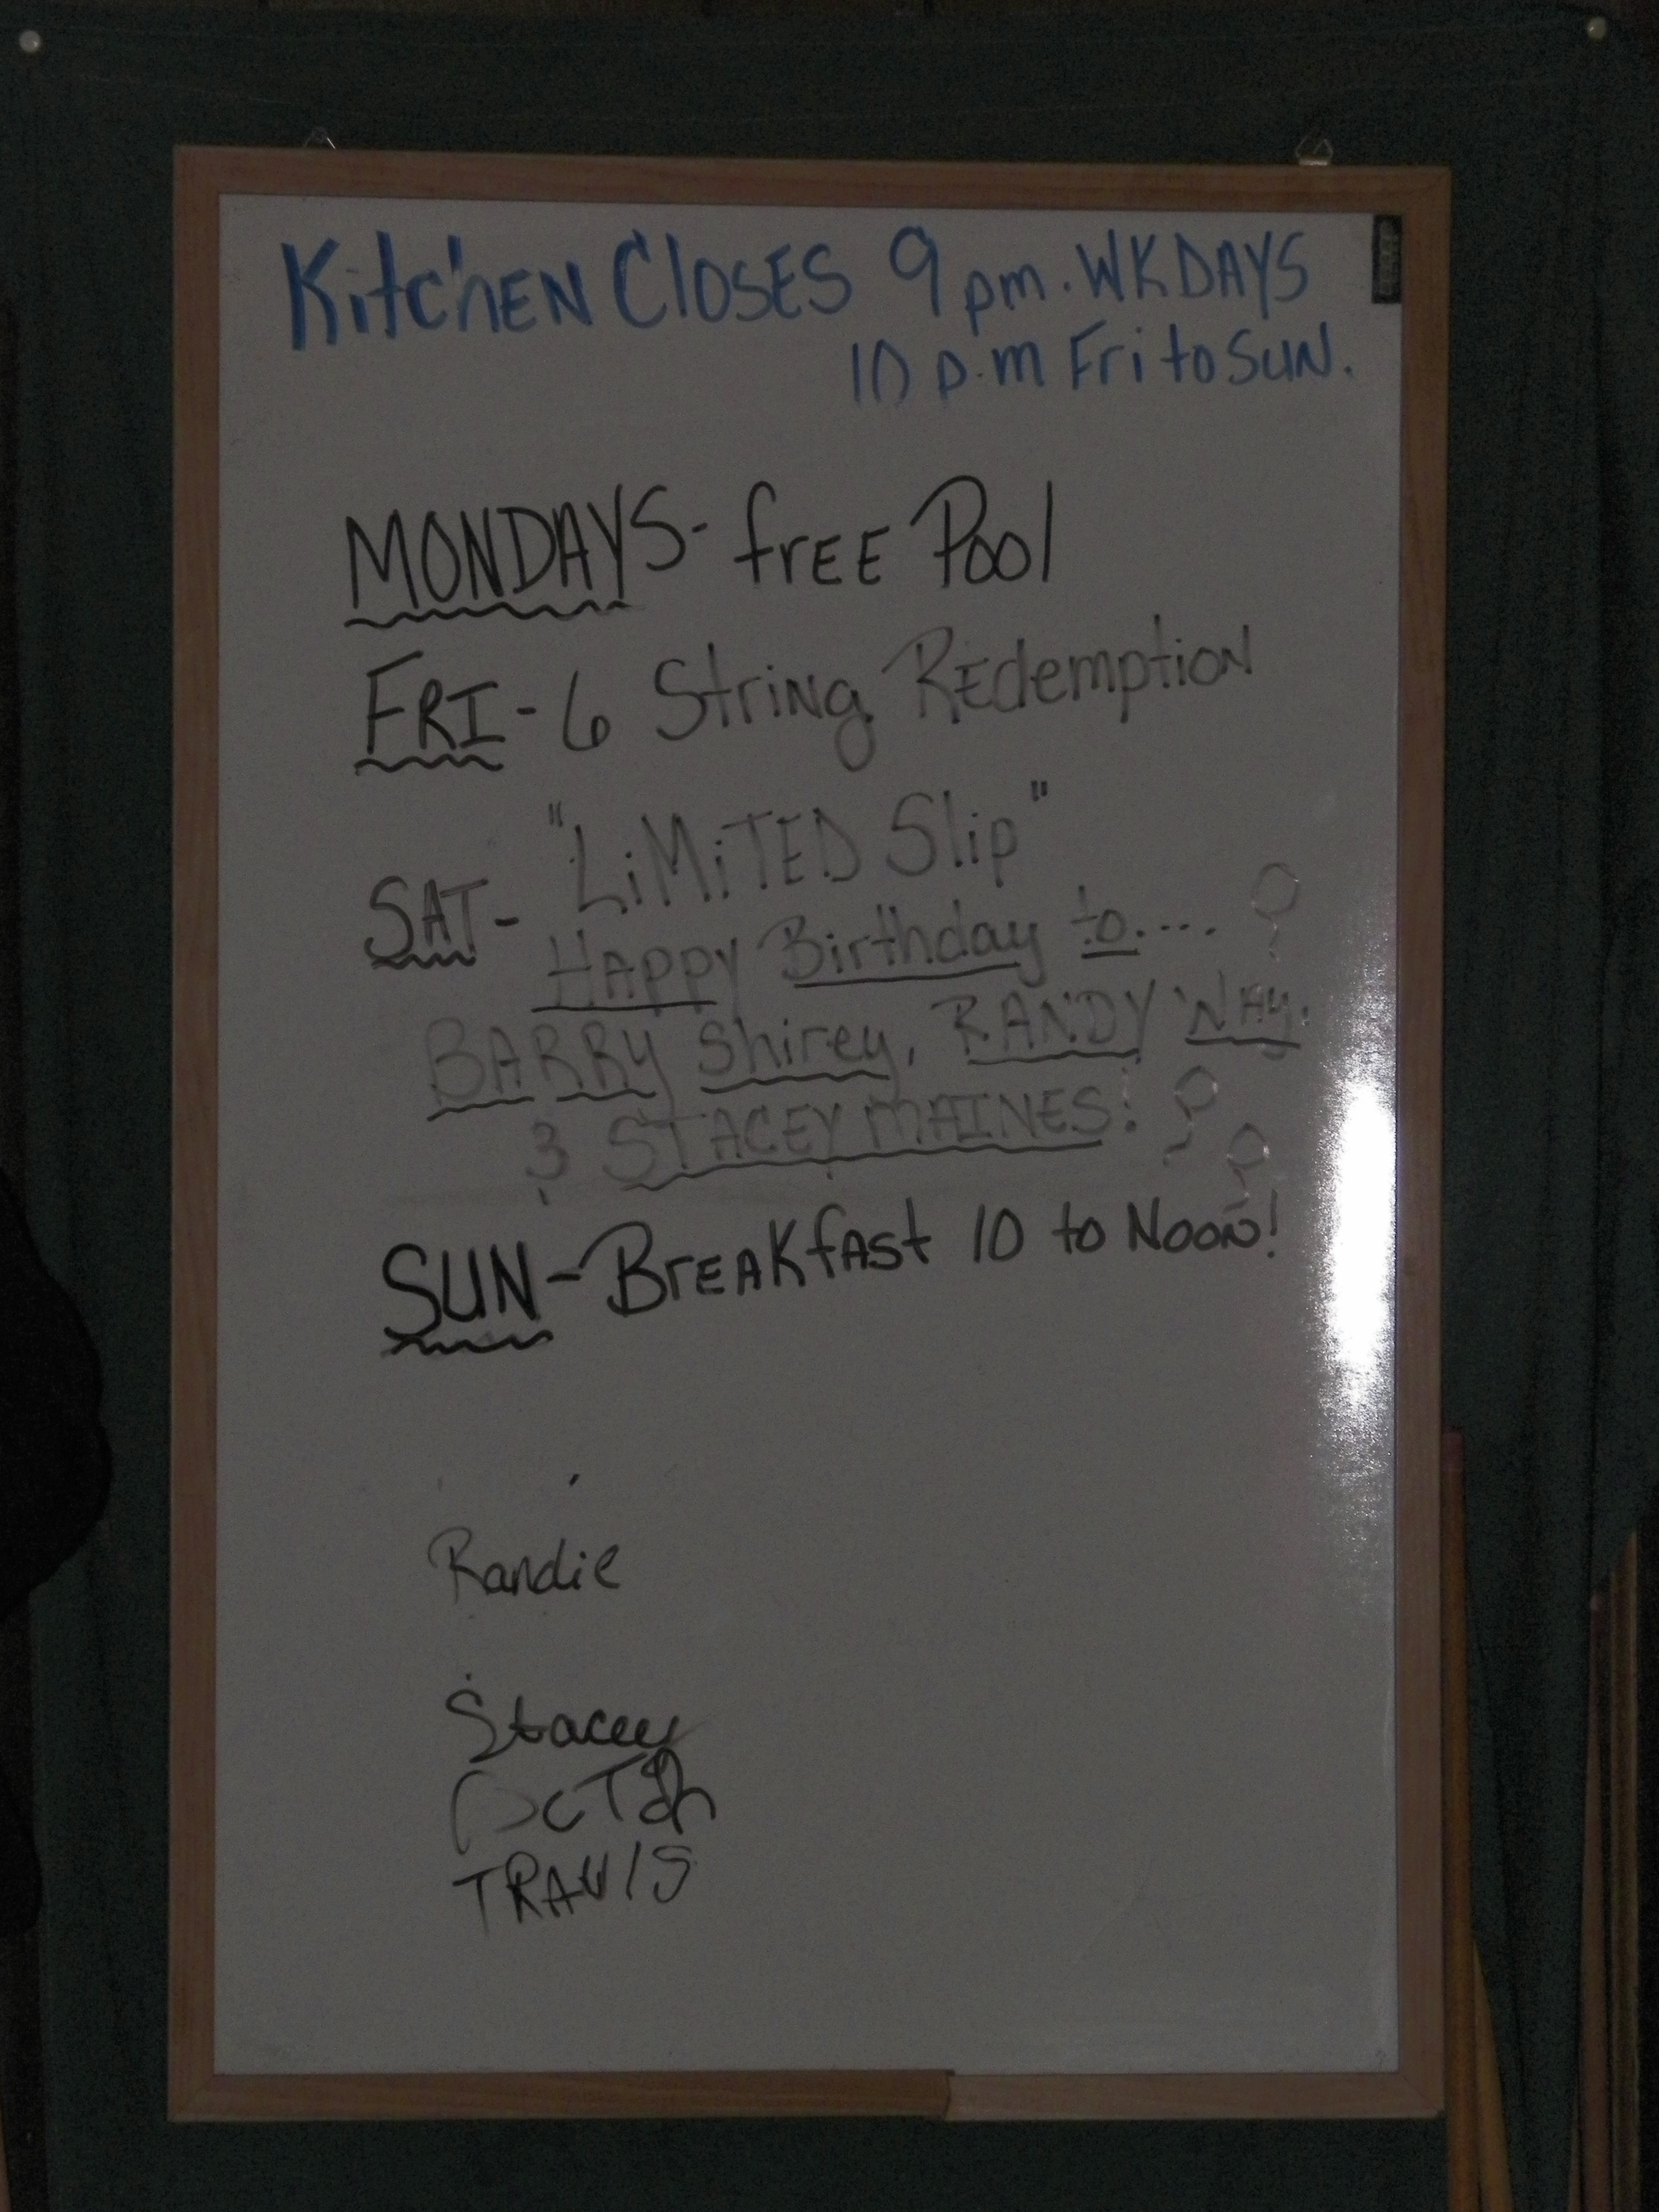 KitchEN CLOSES 9 pm. WKDAYS
10 p.m Fri to SUN.
MONDAYS- frEE Pool
FRI- 6 StriNg REdemptioN
"LiMiTED Slip"
SAT-
HAPPY Birthday to....
BARRY Shirey, RANDY WAY.
& STACEY MAINES!
SUN- BrEAKfAst 10 to NooN!
Randie
Stacey
TRAVIS